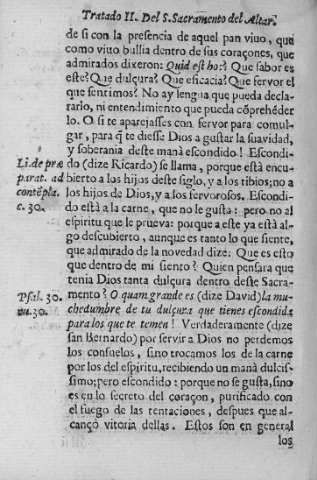 Tratado II. Del S. Sacramento del Altar.
de si con la presencia de aquel pan viuo, que
como viuo bullia dentro de sus coraçones, que
admirados dixeron: Quid est hoc? Que sabor es
este? Que dulçura? Que eficacia? Que feruor el
que sentimos? No ay lengua que pueda decla-
rarlo, ni entendimiento que pueda cõprehẽder
lo. O si te aparejasses con feruor para comul-
gar, para q̃ te diesse Dios a gustar la suauidad,
y soberania deste manà escondido! Escondi-
do (dize Ricardo) se llama, porque està encu-
bierto a los hijos deste siglo, y a los tibios; no a
los hijos de Dios, y a los feruorosos. Escondi-
do està a la carne, que no le gusta: pero no al
espiritu que le prueua: porque a este ya està al-
go descubierto, aunque es tanto lo que siente,
que admirado de la nouedad dize: Que es esto
que dentro de mi siento? Quien pensara que
tenia Dios tanta dulçura dentro deste Sacra-
mento? O quam grande es (dize Dauid) la mu-
chedumbre de tu dulçura que tienes escondida
para los que te temen! Verdaderamente (dize
san Bernardo) por seruir a Dios no perdemos
los consuelos, sino trocamos los de la carne
por los del espiritu, recibiendo un manà dulcis-
simo; pero escondido: porque no se gusta, sino
es en lo secreto del coraçon, purificado con
el fuego de las tentaciones, despues que al-
cançò vitoria dellas. Estos son en general
los
Li. de præ
parat. ad
contẽpla.
c. 30.
Psal. 30.
nu. 30.